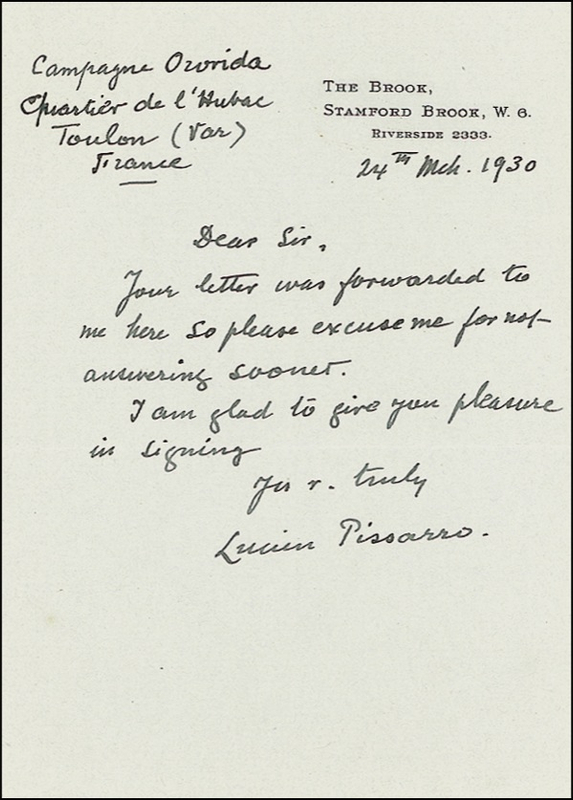 Campagne Orovida
Quartier de l'Hubac
Toulon (Var)
France
THE BROOK,
STAMFORD BROOK, W. 6.
RIVERSIDE 2333.
24th Mch. 1930
Dear Sir,
Your letter was forwarded to
me here so please excuse me for not
answering sooner.
I am glad to give you pleasure
in signing
Yrs v. truly
Lucien Pissarro.